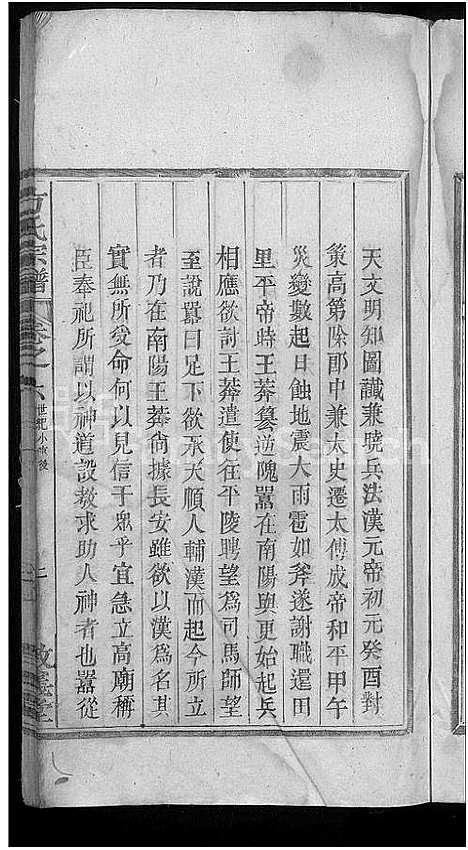 天文明知圖讖兼曉兵法漢元帝初元癸酉對
策高第除郎中兼太史遷太傅成帝和平甲午
災變數起日蝕地震大雨雹如斧遂謝職還田
里平帝時王莽篡逆隗囂在南陽與更始起兵
相應欲討王莽遣使徃平陵聘望爲司馬師望
至說囂曰足下欲承天順人輔漢而起今所立
者乃在南陽王莽尙據長安雖欲以漢爲名其
實無所受命何以見信于衆乎宜急立高廟稱
臣奉祀所謂以神道設敎求助人神者也囂從
方氏宗譜
卷之六
世紀小車後